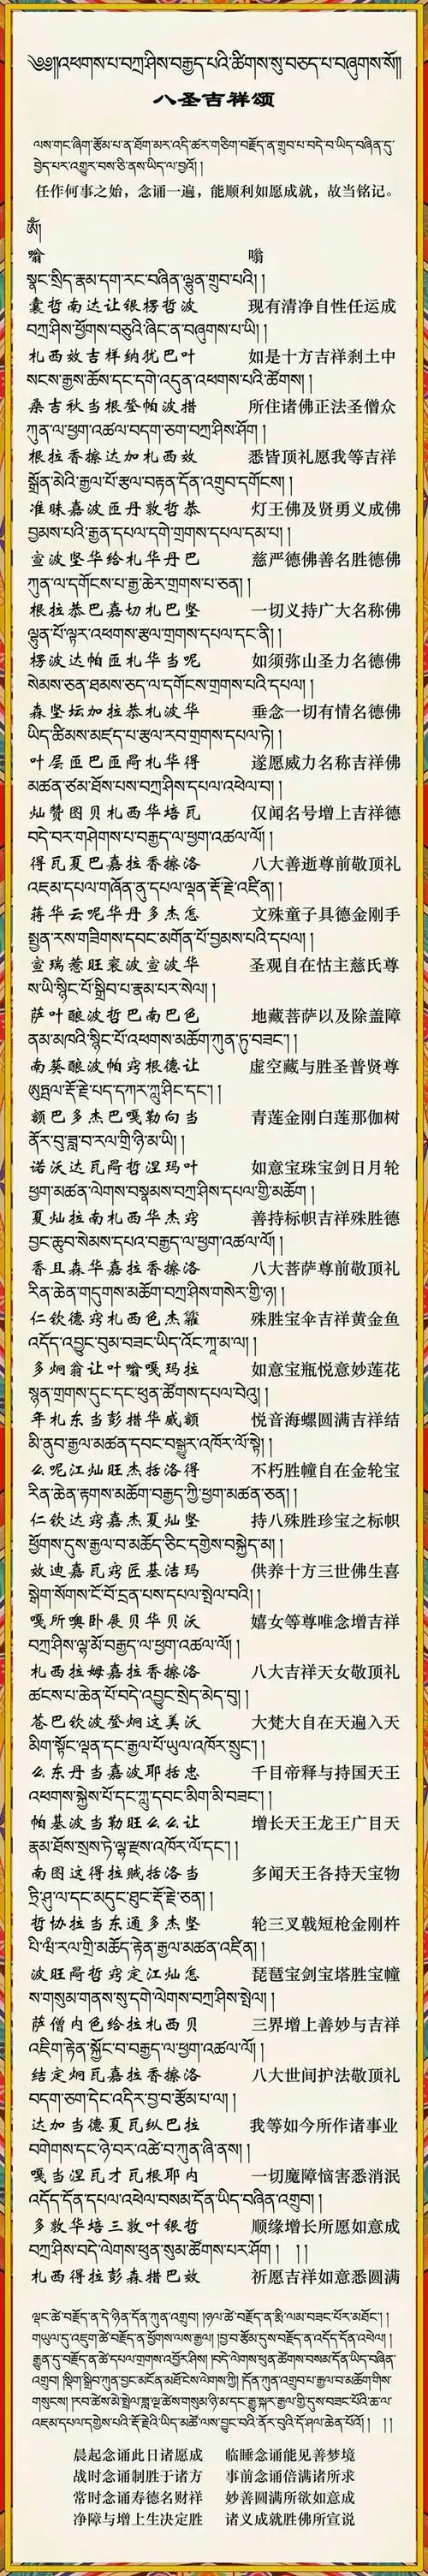 ༄༅། །འཕགས་པ་བཀྲ་ཤིས་བརྒྱད་པའི་ཚིགས་སུ་བཅད་པ་བཞུགས་སོ། །
八圣吉祥颂
ལས་གང་ཞིག་རྩོམ་པ་ན་ཐོག་མར་འདི་ཚར་གཅིག་བརྗོད་ན་གྲུབ་པ་བདེ་བ་ཡིད་བཞིན་དུ་
བྱེད་པར་འགྱུར་བས་ཅི་ནས་ཡིད་ལ་བྱའོ། །
任作何事之始，念诵一遍，能顺利如愿成就，故当铭记。
ༀ།
嗡 嗡
སྣང་སྲིད་རྣམ་དག་རང་བཞིན་ལྷུན་གྲུབ་པའི། །
囊哲南达让银楞哲波 现有清净自性任运成
བཀྲ་ཤིས་ཕྱོགས་བཅུའི་ཞིང་ན་བཞུགས་པ་ཡི། །
札西效吉祥纳犹巴叶 如是十方吉祥刹土中
སངས་རྒྱས་ཆོས་དང་དགེ་འདུན་འཕགས་པའི་ཚོགས། །
桑吉秋当根登帕波措 所住诸佛正法圣僧众
ཀུན་ལ་ཕྱག་འཚལ་བདག་ཅག་བཀྲ་ཤིས་ཤོག །
根拉香擦达加札西效 悉皆顶礼愿我等吉祥
སྒྲོན་མེའི་རྒྱལ་པོ་རྩལ་བརྟན་དོན་འགྲུབ་དགོངས། །
准昧嘉波匝丹敦哲恭 灯王佛及贤勇义成佛
བྱམས་པའི་རྒྱན་དཔལ་དགེ་གྲགས་དཔལ་དམ་པ། །
宣波坚华给札华丹巴 慈严德佛善名胜德佛
ཀུན་ལ་དགོངས་པ་རྒྱ་ཆེར་གྲགས་པ་ཅན། །
根拉恭巴嘉切札巴坚 一切义持广大名称佛
ལྷུན་པོ་ལྟར་འཕགས་རྩལ་གྲགས་དཔལ་དང་ནི། །
楞波达帕匝札华当呢 如须弥山圣力名德佛
སེམས་ཅན་ཐམས་ཅད་ལ་དགོངས་གྲགས་པའི་དཔལ། །
森坚坛加拉恭札波华 垂念一切有情名德佛
ཡིད་ཚིམས་མཛད་པ་རྩལ་རབ་གྲགས་དཔལ་ཏེ། །
叶层匝巴匝 札华得 遂愿威力名称吉祥佛
མཚན་ཙམ་ཐོས་པས་བཀྲ་ཤིས་དཔལ་འཕེལ་བ། །
灿赞图贝札西华培瓦 仅闻名号增上吉祥德
བདེ་བར་གཤེགས་པ་བརྒྱད་ལ་ཕྱག་འཚལ་ལོ། །
得瓦夏巴嘉拉香擦洛 八大善逝尊前敬顶礼
འཇམ་དཔལ་གཞོན་ནུ་དཔལ་ལྡན་རྡོ་རྗེ་འཛིན། །
蒋华云呢华丹多杰怎 文殊童子具德金刚手
སྤྱན་རས་གཟིགས་དབང་མགོན་པོ་བྱམས་པའི་དཔལ། །
宣瑞惹旺衮波宣波华 圣观自在怙主慈氏尊
ས་ཡི་སྙིང་པོ་སྒྲིབ་པ་རྣམ་པར་སེལ། །
萨叶酿波哲巴南巴色 地藏菩萨以及除盖障
ནམ་མཁའི་སྙིང་པོ་འཕགས་མཆོག་ཀུན་ཏུ་བཟང༌། །
南葵酿波帕窍根德让 虚空藏与胜圣普贤尊
ཨུཏྤལ་རྡོ་རྗེ་པད་དཀར་ཀླུ་ཤིང་དང༌། །
额巴多杰巴嘎勒向当 青莲金刚白莲那伽树
ནོར་བུ་ཟླ་བ་རལ་གྲི་ཉི་མ་ཡི། །
诺沃达瓦 哲涅玛叶 如意宝珠宝剑日月轮
ཕྱག་མཚན་ལེགས་བསྣམས་བཀྲ་ཤིས་དཔལ་གྱི་མཆོག །
夏灿拉南札西华杰窍 善持标帜吉祥殊胜德
བྱང་ཆུབ་སེམས་དཔའ་བརྒྱད་ལ་ཕྱག་འཚལ་ལོ། །
香且森华嘉拉香擦洛 八大菩萨尊前敬顶礼
རིན་ཆེན་གདུགས་མཆོག་བཀྲ་ཤིས་གསེར་གྱི་ཉ། །
仁钦德窍札西色杰 殊胜宝伞吉祥黄金鱼
འདོད་འབྱུང་བུམ་བཟང་ཡིད་འོང་ཀཱ་མ་ལ། །
多炯翁让叶嗡嘎玛拉 如意宝瓶悦意妙莲花
སྙན་གྲགས་དུང་དང་ཕུན་ཚོགས་དཔལ་བེའུ། །
年札东当彭措华威额 悦音海螺圆满吉祥结
མི་ནུབ་རྒྱལ་མཚན་དབང་བསྒྱུར་འཁོར་ལོ་སྟེ། །
么呢江灿旺杰括洛得 不朽胜幢自在金轮宝
རིན་ཆེན་རྟགས་མཆོག་བརྒྱད་ཀྱི་ཕྱག་མཚན་ཅན། །
仁钦达窍嘉杰夏灿坚 持八殊胜珍宝之标帜
ཕྱོགས་དུས་རྒྱལ་བ་མཆོད་ཅིང་དགྱེས་བསྐྱེད་མ། །
效迪嘉瓦窍匠基洁玛 供养十方三世佛生喜
སྒེག་སོགས་ངོ་བོ་དྲན་པས་དཔལ་སྤེལ་བའི། །
嘎所噢卧展贝华贝沃 嬉女等尊唯念增吉祥
བཀྲ་ཤིས་ལྷ་མོ་བརྒྱད་ལ་ཕྱག་འཚལ་ལོ། །
札西拉姆嘉拉香擦洛 八大吉祥天女敬顶礼
ཚངས་པ་ཆེན་པོ་བདེ་འབྱུང་སྲེད་མེད་བུ། །
苍巴钦波登炯这美沃 大梵大自在天遍入天
མིག་སྟོང་ལྡན་དང་རྒྱལ་པོ་ཡུལ་འཁོར་སྲུང༌། །
么东丹当嘉波耶括忠 千目帝释与持国天王
འཕགས་སྐྱེས་པོ་དང་ཀླུ་དབང་མིག་མི་བཟང༌། །
帕基波当勒旺么么让 增长天王龙王广目天
རྣམ་ཐོས་སྲས་ཏེ་ལྷ་རྫས་འཁོར་ལོ་དང༌། །
南图这得拉贼括洛当 多闻天王各持天宝物
ཏྲི་ཤུ་ལ་དང་མདུང་ཐུང་རྡོ་རྗེ་ཅན། །
哲协拉当东通多杰坚 轮三叉戟短枪金刚杵
པི་ཝཾ་རལ་གྲི་མཆོད་རྟེན་རྒྱལ་མཚན་འཛིན། །
波旺 哲窍定江灿怎 琵琶宝剑宝塔胜宝幢
ས་གསུམ་གནས་སུ་དགེ་ལེགས་བཀྲ་ཤིས་སྤེལ། །
萨僧内色给拉札西贝 三界增上善妙与吉祥
འཇིག་རྟེན་སྐྱོང་བ་བརྒྱད་ལ་ཕྱག་འཚལ་ལོ། །
结定炯瓦嘉拉香擦洛 八大世间护法敬顶礼
བདག་ཅག་དེང་འདིར་བྱ་བ་རྩོམ་པ་ལ། །
达加当德夏瓦纵巴拉 我等如今所作诸事业
བགེགས་དང་ཉེ་བར་འཚེ་བ་ཀུན་ཞི་ནས། །
嘎当涅瓦才瓦根耶内 一切魔障恼害悉消泯
འདོད་དོན་དཔལ་འཕེལ་བསམ་དོན་ཡིད་བཞིན་འགྲུབ། །
多敦华培三敦叶银哲 顺缘增长所愿如意成
བཀྲ་ཤིས་བདེ་ལེགས་ཕུན་སུམ་ཚོགས་པར་ཤོག །  །།
札西得拉彭森措巴效 祈愿吉祥如意悉圆满
ལྡང་ཚེ་བརྗོད་ན་དེ་ཉིན་དོན་ཀུན་འགྲུབ། །ཉལ་ཚེ་བརྗོད་ན་རྨི་ལམ་བཟང་པོར་མཐོང༌། །
གཡུལ་དུ་འཇུག་ཚེ་བརྗོད་ན་ཕྱོགས་ལས་རྒྱལ། །བྱ་བ་རྩོམ་དུས་བརྗོད་ན་འདོད་དོན་འཕེལ། །
རྒྱུན་དུ་བརྗོད་ན་ཚེ་དཔལ་གྲགས་འབྱོར་ཤིས། །བདེ་ལེགས་ཕུན་ཚོགས་བསམ་དོན་ཡིད་བཞིན་
འགྲུབ། །སྡིག་སྒྲིབ་ཀུན་བྱང་མངོན་མཐོ་ངེས་ལེགས་ཀྱི། །དོན་ཀུན་འགྲུབ་པ་རྒྱལ་བ་མཆོག་གིས་
གསུངས།
晨起念诵此日诸愿成 临睡念诵能见善梦境
战时念诵制胜于诸方 事前念诵倍满诸所求
常时念诵寿德名财祥 妙善圆满所欲如意成
净障与增上生决定胜 诸义成就胜佛所宣说